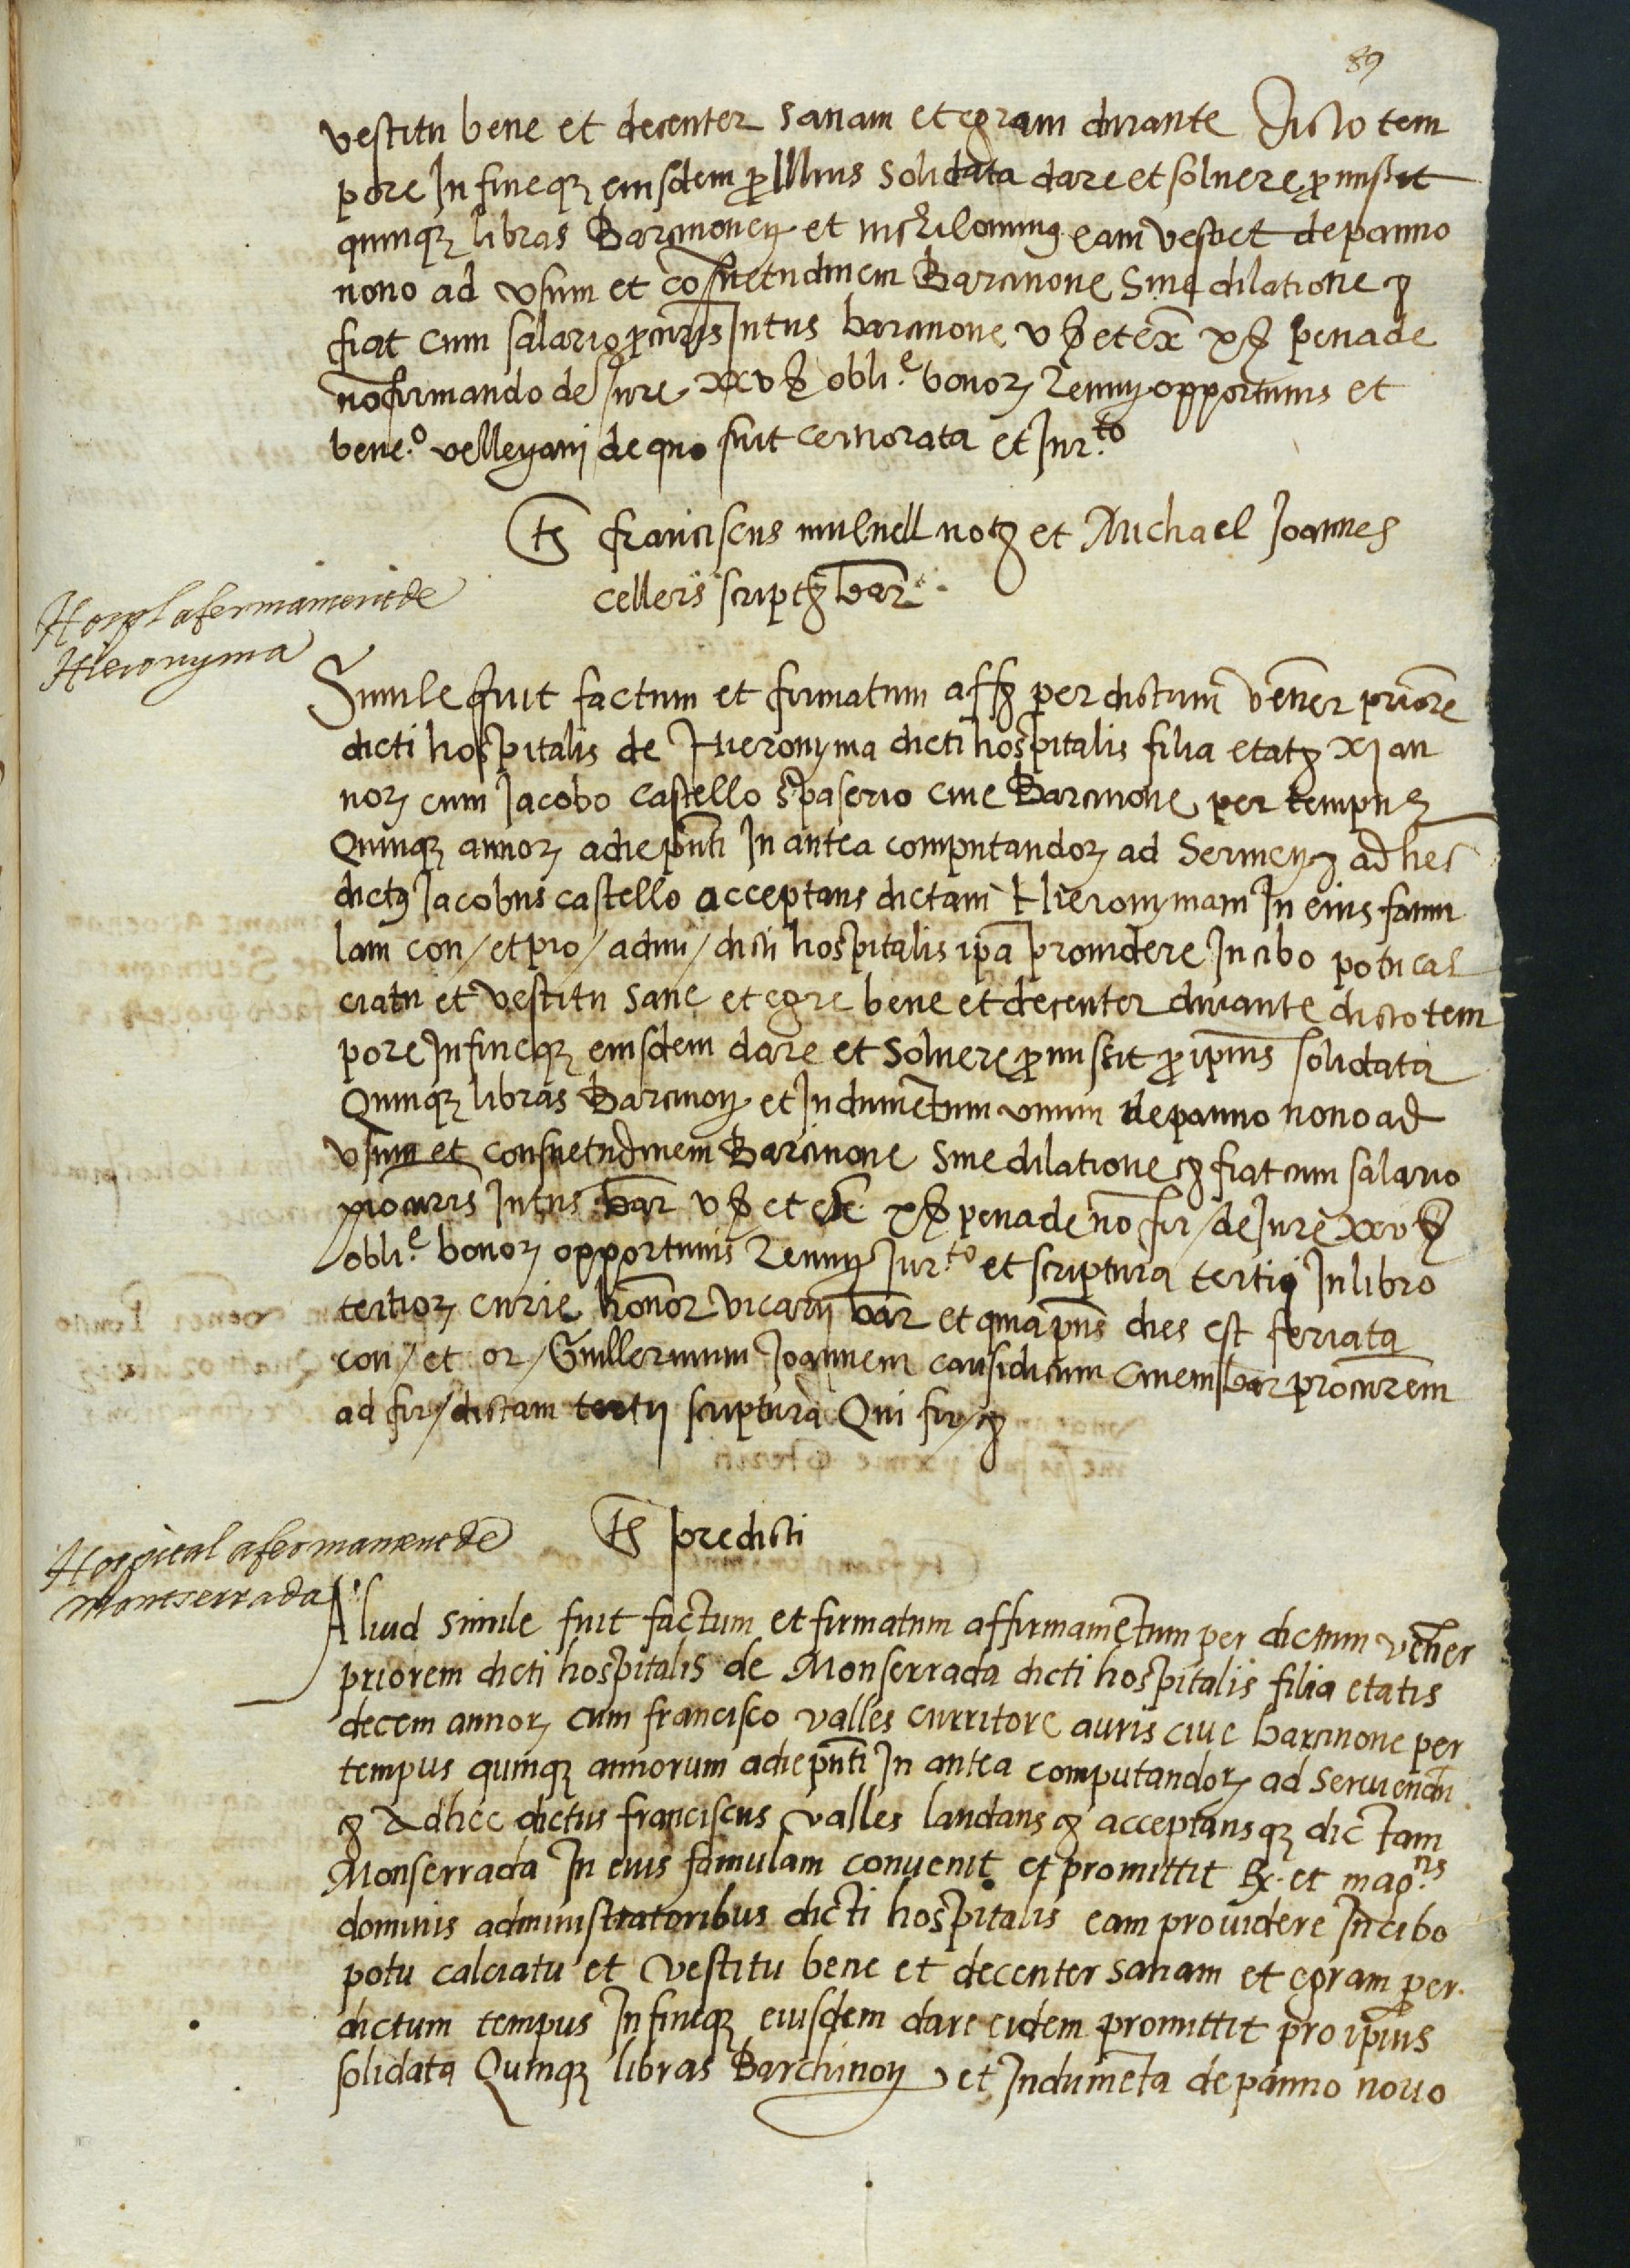 89
vestitu bene et decenter sanam et egram durante dicto tem
pore In fineqꝫ eiusdem ꝓ Illius solidata dare et soluere ꝓmissit
quinqꝫ libras Barcinoneñ et nichilominus eam vestiet de panno
nouo ad vsum et cosuetudinem Barcinone sine dilatione ꝛ
fiat cum salario ꝓcuris Intus barcinone v ß et ex̄ x ß pena de
no firmando de Iure xxv ß obli.e bonoꝝ renun opportunis et
bene.o velleyani de quo fuit cerciorata et Iur.to
ts franciscus mulnell not et Michael Joannes
cellers script bar.
Hospl afermament de
Hieronyma
Simile fuit factum et firmatum aff per dictum vener priore
dicti hospitalis de Hieronyma dicti hospitalis filia etat xj an
noꝝ cum Jacobo castello spaserio ciue Barcinone per tempus
Quinqꝫ annoꝝ adie pnti In antea computandoꝝ ad Seruien ad hec
dictꝰ Jacobus castello acceptans dictam Hieronymam In eius famu
lam con / et pro / admi / dicti hospitalis ipa prouidere In cibo potu cal
ciatu et vestitu sane et egre bene et decenter durante dicto tem
pore In fineqꝫ eiusdem dare et soluere ꝓmissit ꝓ ipius solidata
Quinqꝫ libras Barcinon et Indumetum vnum de panno nouo ad
vsum et consuetudinem Barcinone sine dilatione ꝛ fiat cum salario
procuris Intus bar v ß et ex̄ x ß pena de no fir / de Iure xxv ß
obli.e bonoꝝ opportunis renun Iur.to et scriptura tertij In libro
tertioꝝ curie honor vicarij bar et quia pns dies est feriata
con / et or / Guillermum Joannem causidicum Ciuem bar procurem
ad fir / dictam tertij scriptura Qui fir / ꝛ
ts predicti
Hospital afermament de
montserrada
Aliud simile fuit factum et firmatum affirmametum per dictum vener
priorem dicti hospitalis de Monserrada dicti hospitalis filia etatis
decem annoꝝ cum francisco valles curritore auris ciue barcinone per
tempus quinqꝫ annorum adie pnti In antea computandoꝝ ad seruiendu
ꝛ Adhec dictus franciscus valles laudans ꝛ acceptansqꝫ dictam
Monserrada In eius famulam conuenit et promittit Rx. et mag.cis
dominis administratoribus dicti hospitalis eam prouidere In cibo
potu calciatu et vestitu bene et decenter sanam et egram per
dictum tempus In fineqꝫ eiusdem dare eidem promittit pro ipius
solidata Quinqꝫ libras Barchinon et Indumeta de panno nouo